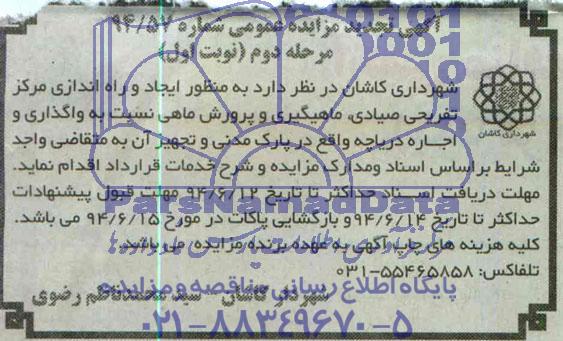 آگهی تجدید مزایده عمومی شماره ۹۴/۵۷
مرحله دوم (نوبت اول)
شهرداری کاشان در نظر دارد به منظور ایجاد و راه اندازی مرکز
تفریحی صیادی، ماهیگیری و پرورش ماهی نسبت به واگذاری و
اجاره دریاچه واقع در پارک مدنی و تجهیز آن به متقاضی واجد
شرایط براساس اسناد ومدارک مزایده و شرح خدمات قرارداد اقدام نماید.
مهلت دریافت اسناد حداکثر تا تاریخ ۹۴/۶/۱۲ مهلت قبول پیشنهادات
حداکثر تا تاریخ ۹۴/۶/۱۴ و بازگشایی پاکات در مورخ ۹۴/۶/۱۵ می باشد.
کلیه هزینه های چاپ آگهی به عهده برنده مزایده می باشد.
تلفاکس: ۵۵۴۶۵۸۵۸-۰۳۱
شهردار کاشان - سید محمدناظم رضوی
شهرداری کاشان
ParsNamadData
پایگاه اطلاع رسانی مناقصه و مزایده
۰۲۱-۸۸۳۴۹۶۷۰-۵